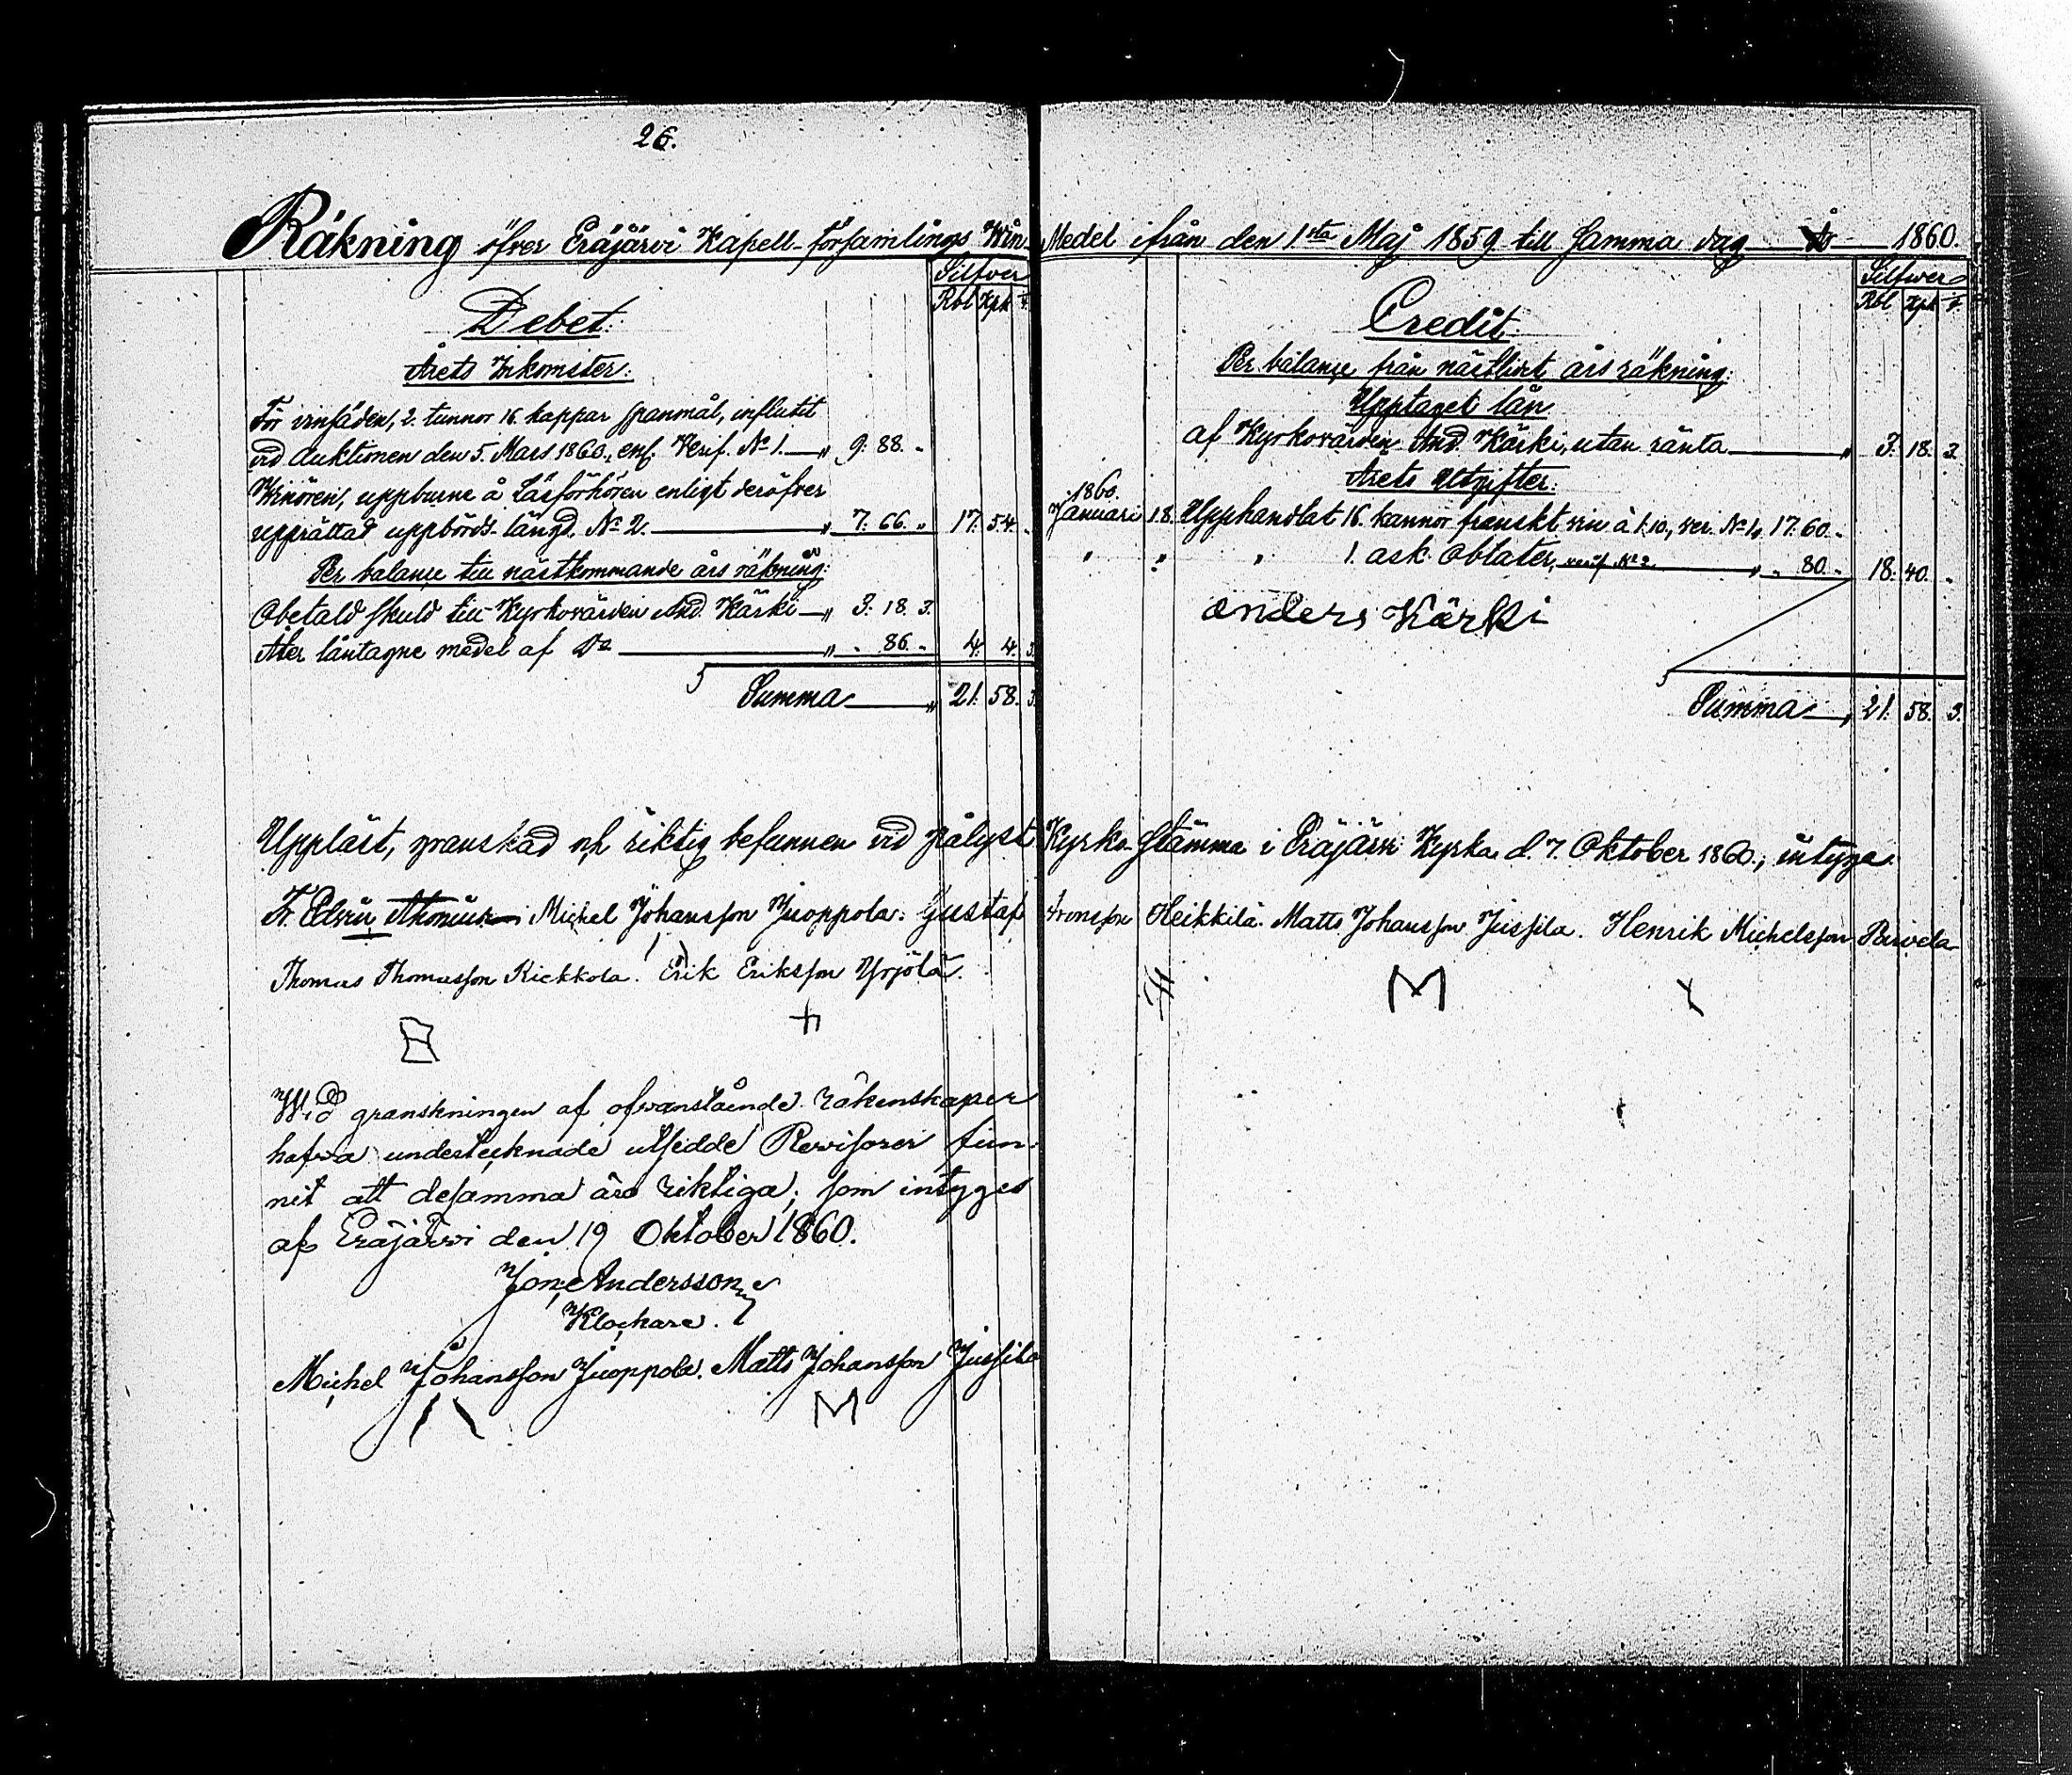 26.
Räkning öfver Eräjärvi Kapell-församlings Win-Medel ifrån den 1sta Maj 1859 till samma dag år 1860.
Silfver
Rbl Kpk
Debet:
Årets Inkomster:
För vinsäden, 2. tunnor 16. kappar spanmål, influtit
vid Auktionen den 5. Mars 1860., enl. Verif. No 1. — „ 9. 88. „
Vinören, uppburne å Läsförhören enligt deröfver
upprättad uppbörds-längd. No 2. — „ 7. 66. „ 17. 54. „
Per balance till nästkommande års räkning:
Obetald skuld till Kyrkovärden And. Kärki — „ 3. 18. 3.
Åter låntagne medel af Do — „ „ 86. „ 4. 4. 3.
Summa — „ 21. 58. 3.
Silfver
Rbl Kpk
Credit:
Per balance från nästlidit års räkning:
Upptaget lån
af Kyrkovärden And. Kärki, utan ränta — „ 3. 18. 3.
Årets Utgifter:
1860.
Januari 18. Upphandlat 16. kannor franskt vin à 1.10., ver. No 1, 17. 60. „
„ „ „ 1. ask Oblater, verif. No 2. — „ „ 80. „ 18. 40. „
anders Kärki
Summa — „ 21. 58. 3.
Uppläst, granskad och riktig befunnen vid pålyst Kyrko-Stämma i Eräjärvi Kyrka d. 7. Oktober 1860., intyga
Fr. Edvin Michel Johansson Juoppola. Gustaf Heikkilä. Matts Johansson Jussila. Henrik Michelsson
Thomas Thomasson Kiekkola. Erik Eriksson Yrjölä.
M
Wid granskningen af ofvanstående räkenskaper
hafva undertecknade utsedde Revisorer fun-
nit att desamma äro riktiga; som intyges
af Eräjärvi den 19 Oktober 1860.
Jon: Andersson
Klockare.
Michel Johansson Juoppola. Matts Johansson Jussila
M